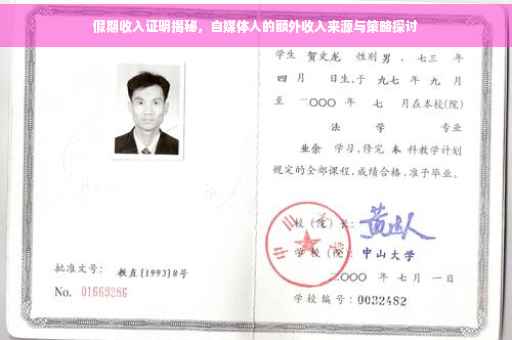 假期收入证明揭秘，自媒体人的额外收入来源与策略探讨
学生 贺文龙 性别 男 、七三 年
四 月 日生,于 九七 年 九 月
至 二〇〇〇 年 七 月在本校(院)
法 学 专业
业余 学习,修完 本 科教学计划
规定的全部课程,成绩合格,准予毕业。
校 (院) 长:
学 校 (院): 中山大学
二〇〇〇 年 七 月 一 日
学校编号: 0032482
批准文号: 教直(1993)8号
No. 01669286